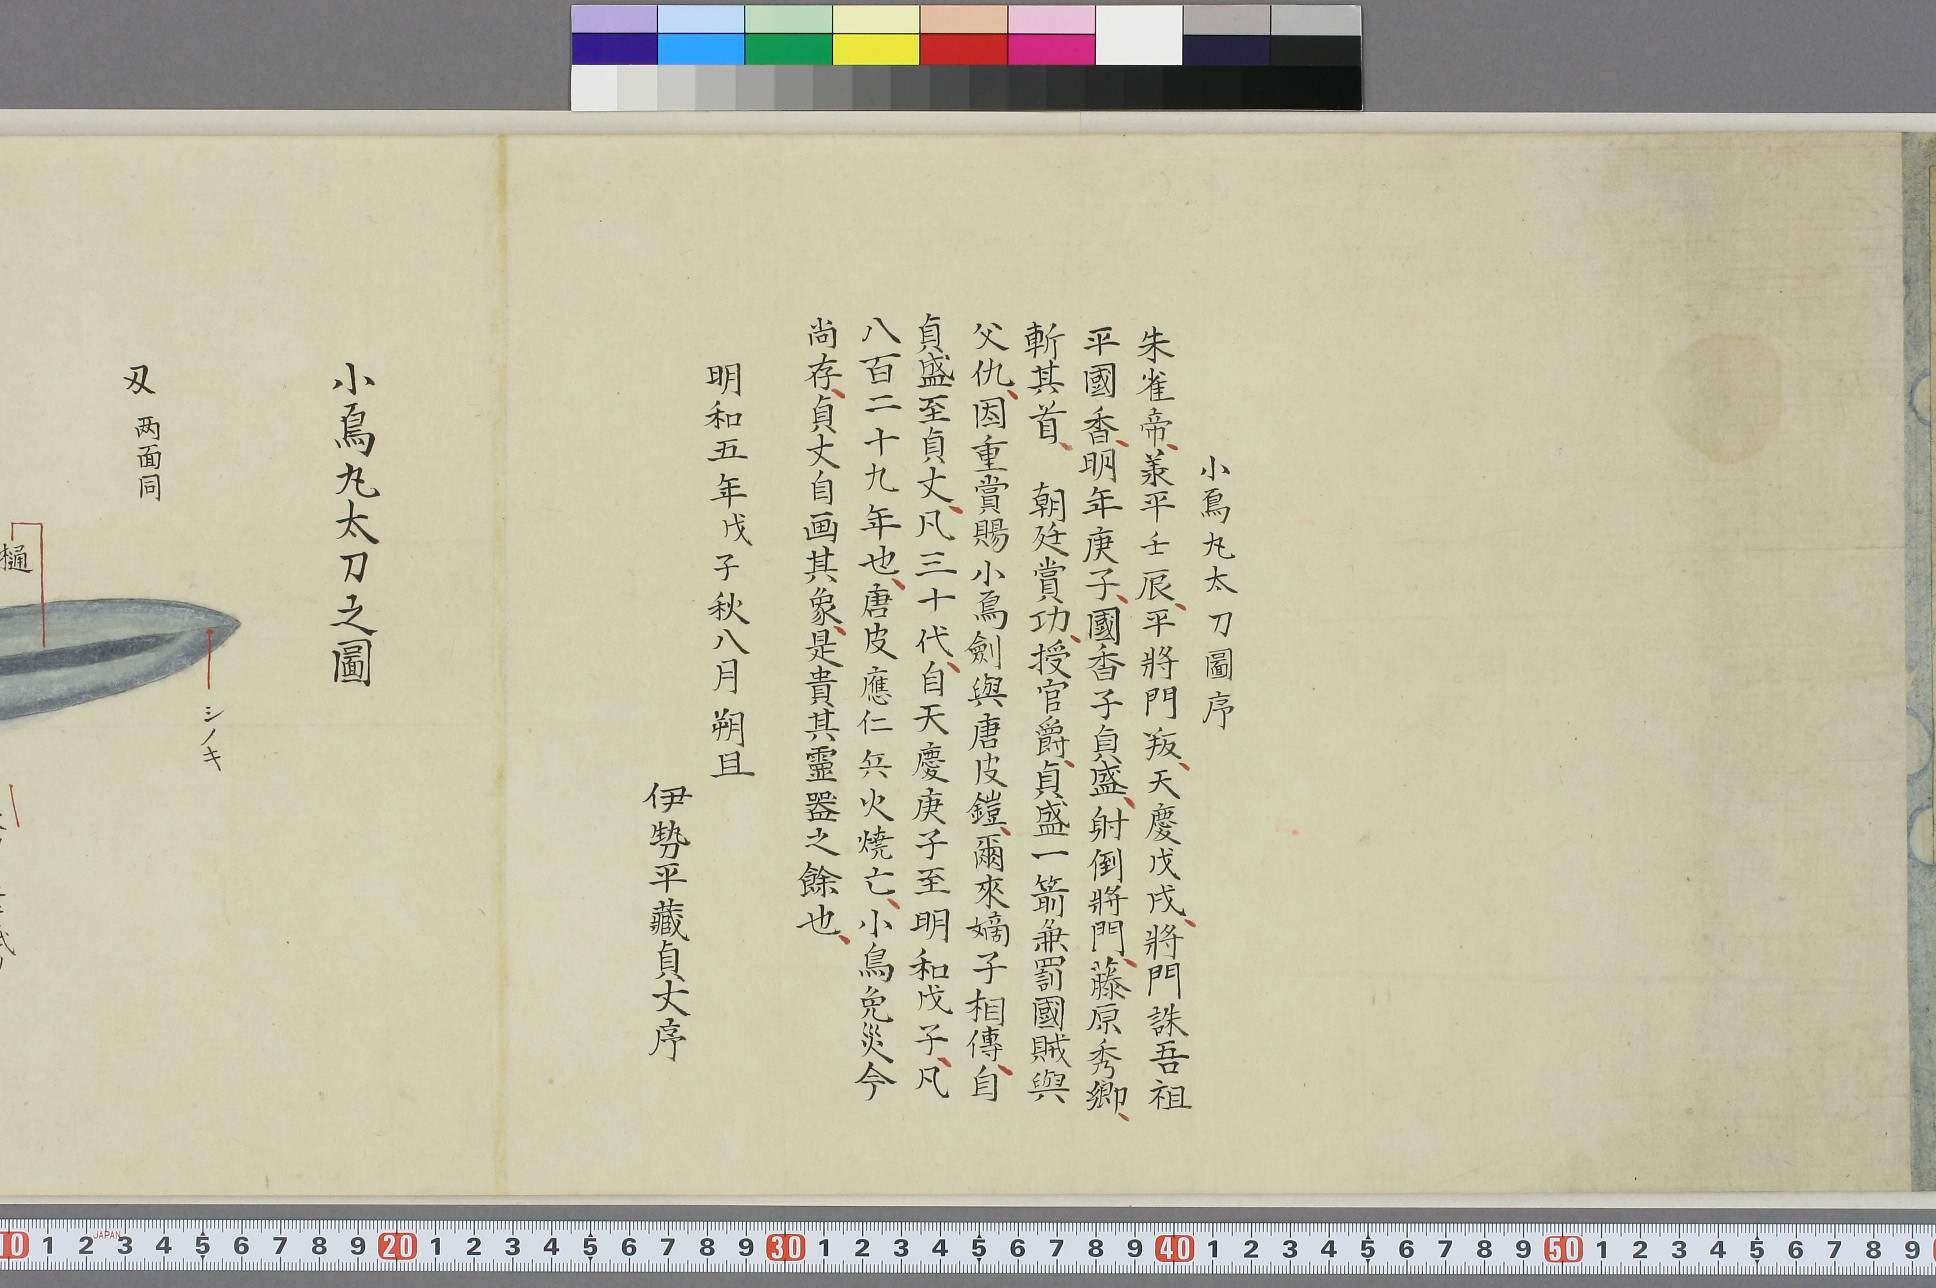 小烏丸太刀圖序
朱雀帝、承平壬辰、平將門叛、天慶戊戌、將門誅吾祖
平國香、明年庚子、國香子貞盛、射倒將門、藤原秀郷、
斬其首、 朝廷賞功、授官爵、貞盛一箭兼罰國賊與
父仇、因重賞賜小烏劍與唐皮鎧、爾來嫡子相傳、自
貞盛至貞丈、凡三十代、自天慶庚子至明和戊子、凡
八百二十九年也、唐皮應仁兵火燒亡、小烏免災今
尚存、貞丈自画其象、是貴其靈器之餘也、
明和五年戊子秋八月朔旦
伊勢平藏貞丈序
小烏丸太刀之圖
シノキ
刃 两面同
樋
10 1 2 JAPAN 3 4 5 6 7 8 9 20 1 2 3 4 5 6 7 8 9 30 1 2 3 4 5 6 7 8 9 40 1 2 3 4 5 6 7 8 9 50 1 2 3 4 5 6 7 8 9